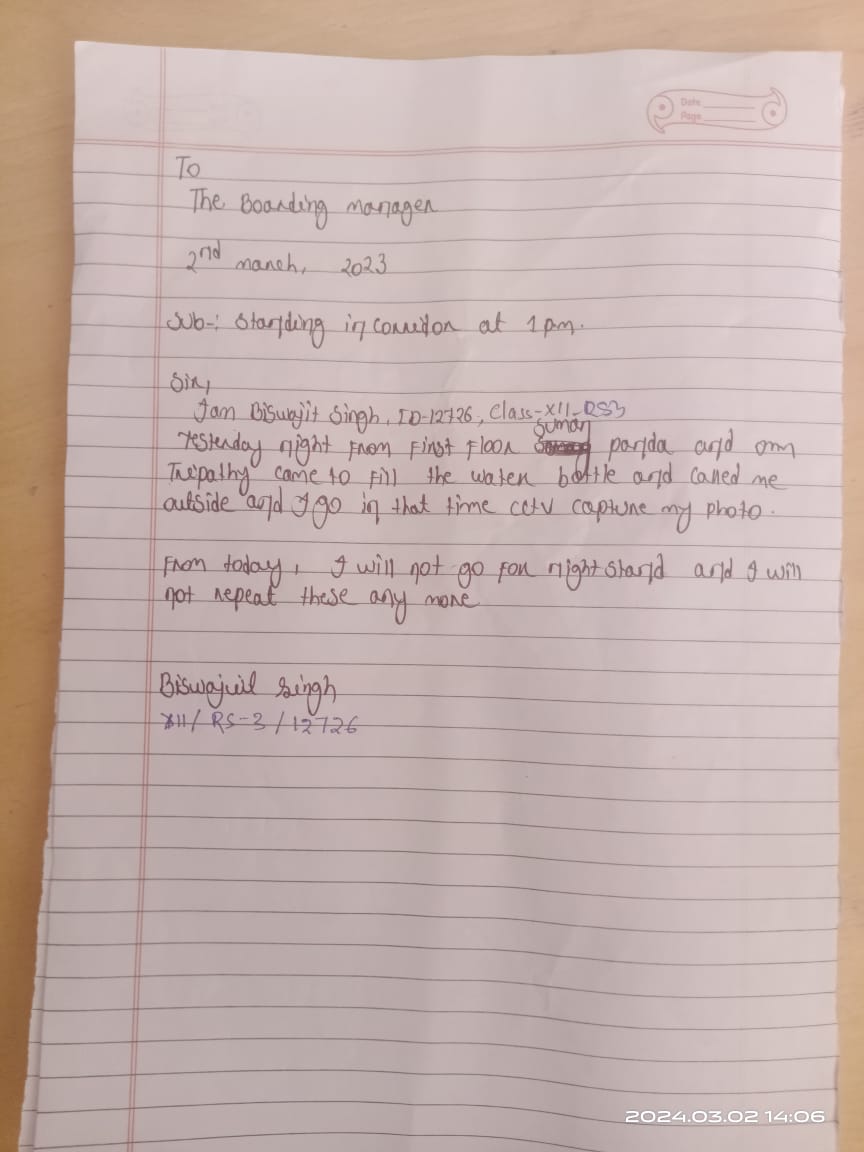 Date
Page
To
The Boarding manager
2nd march, 2023
Sub-: Standing in corridor at 1 pm.
Sir,
I am Biswajit Singh, ID-12726, Class-XII-RS3
suman
Yesterday night From First Floor panda and om
Trepathy came to Fill the water bottle and called me
outside and I go in that time cctv capture my photo.
From today, I will not go for night stand and I will
not repeat these any more
Biswajit Singh
XII/ RS-3 / 12726
2024.03.02 14:06